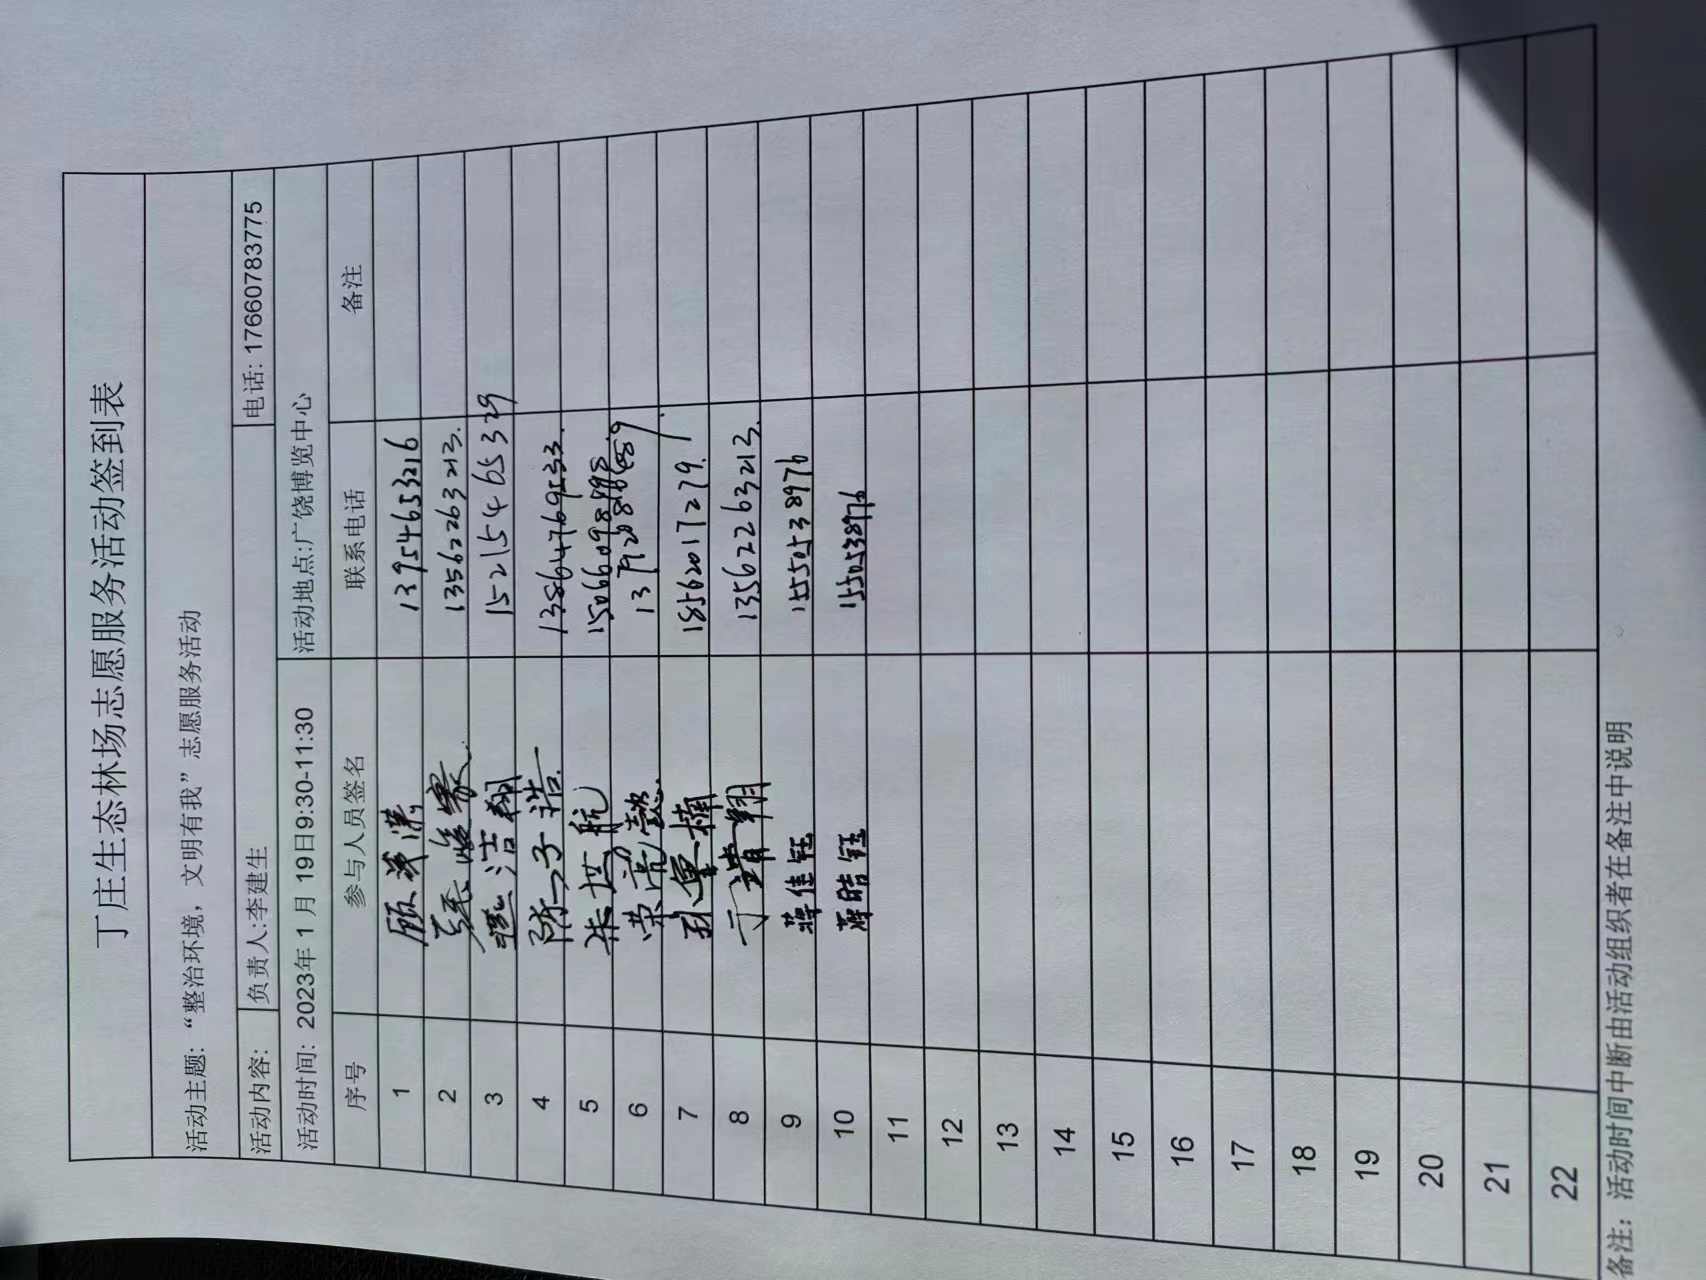 丁庄生态林场志愿服务活动签到表
活动主题:“整治环境，文明有我”志愿服务活动
活动内容: 负责人:李建生 电话: 17660783775
活动时间: 2023年 1 月 19日9:30-11:30 活动地点:广饶博览中心
序号 参与人员签名 联系电话 备注
1 13954653216
2 13562263213.
3 洁翔 15215465329
4 陈子浩 13864769533.
5 朱世航 15066098898
6 荣 懿
7 楠 18562017279.
8 于靖翔 13562263213.
9 蒋佳钰 1550538976
10 蒋皓钰 1550538976
11
12
13
14
15
16
17
18
19
20
21
22
备注: 活动时间中断由活动组织者在备注中说明